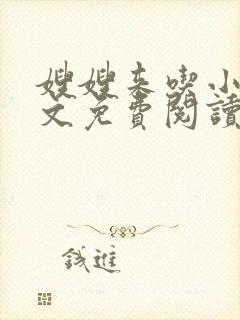 嫂嫂来喫小
文免費閱讀
錢進